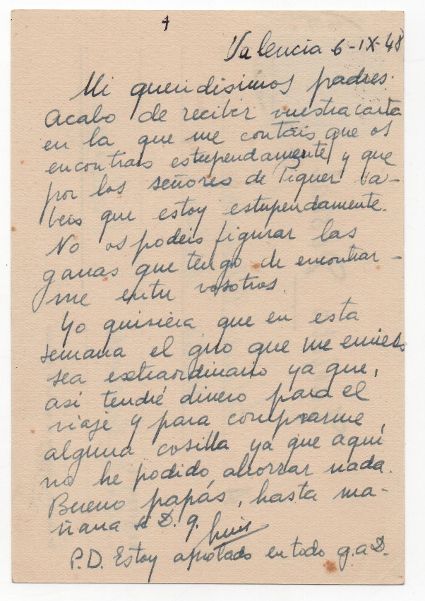 4
Valencia 6-IX-48
Mi queridisimos padres:
Acabo de recibir vuestra carta
en la que me contáis que os
encontrais estupendamente y que
por los señores de Tiguer sa-
beis que estoy estupendamente.
No os podeis figurar las
ganas que tengo de encontrar-
me entre vosotros.
Yo quisiera que en esta
semana el giro que me envieis
sea extraordinario ya que,
asi tendré dinero para el
viaje y para comprarme
alguna cosilla ya que aquí
no he podido ahorrar nada.
Bueno papás, hasta ma-
ñana a D. g.
Luis
P.D. Estoy aprobado en todo g. a D.